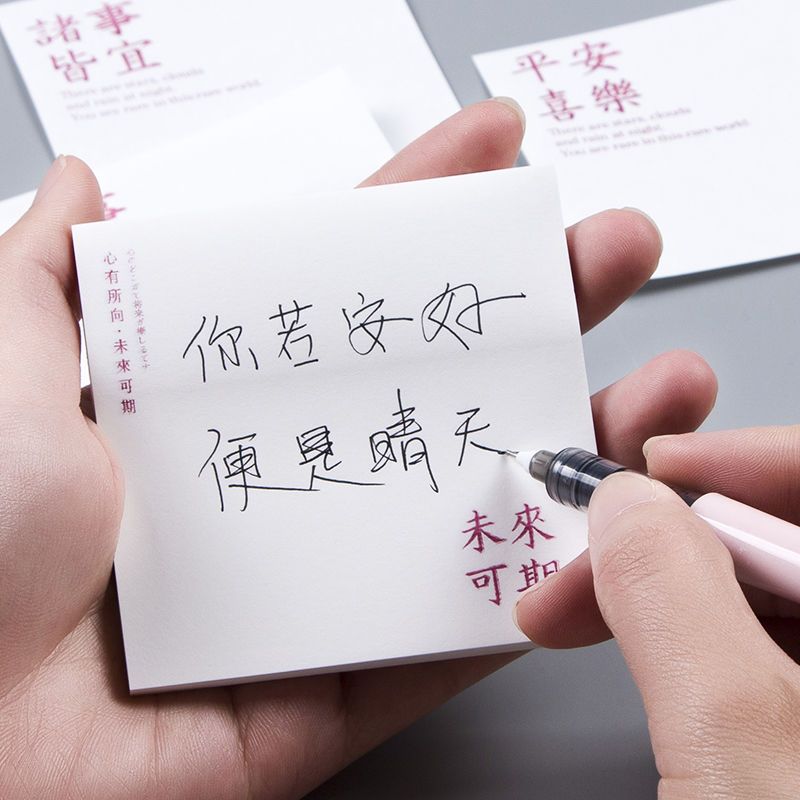 諸事
皆宜
There are stars, clouds
and rain at night.
You are rare in this rare world.
平安
喜樂
There are stars, clouds
and rain at night.
You are rare in this rare world.
心有所向·未來可期
你若安好
便是晴天
未來
可期